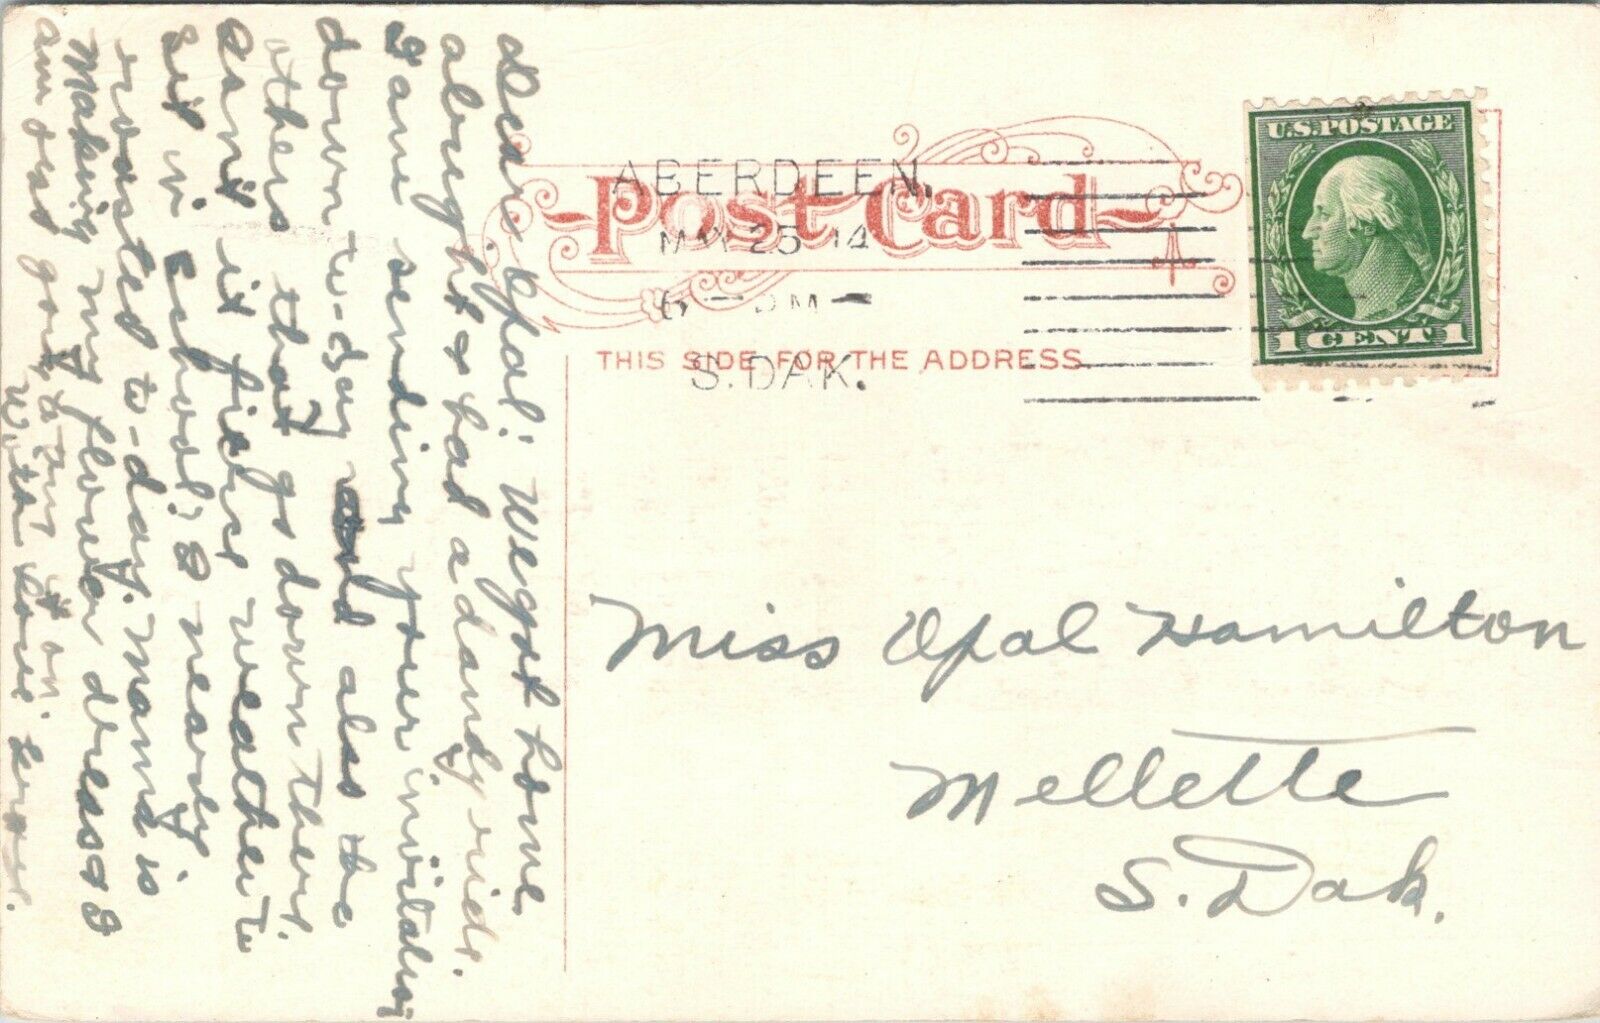 Dear Opal: We got home
alright & had a dandy ride.
I am sending your invitation
down to-day and also the
others that go down there.
Isn't it fierce weather to
set in school? I nearly
roasted to-day. Mama is
Making my flower dress & I
am just going to try it on.
With love
U.S. POSTAGE
1 CENT 1
ABERDEEN,
MAY 25 14
6 - PM -
S. DAK.
Post Card
THIS SIDE FOR THE ADDRESS
Miss Opal Hamilton
Mellette
S. Dak.